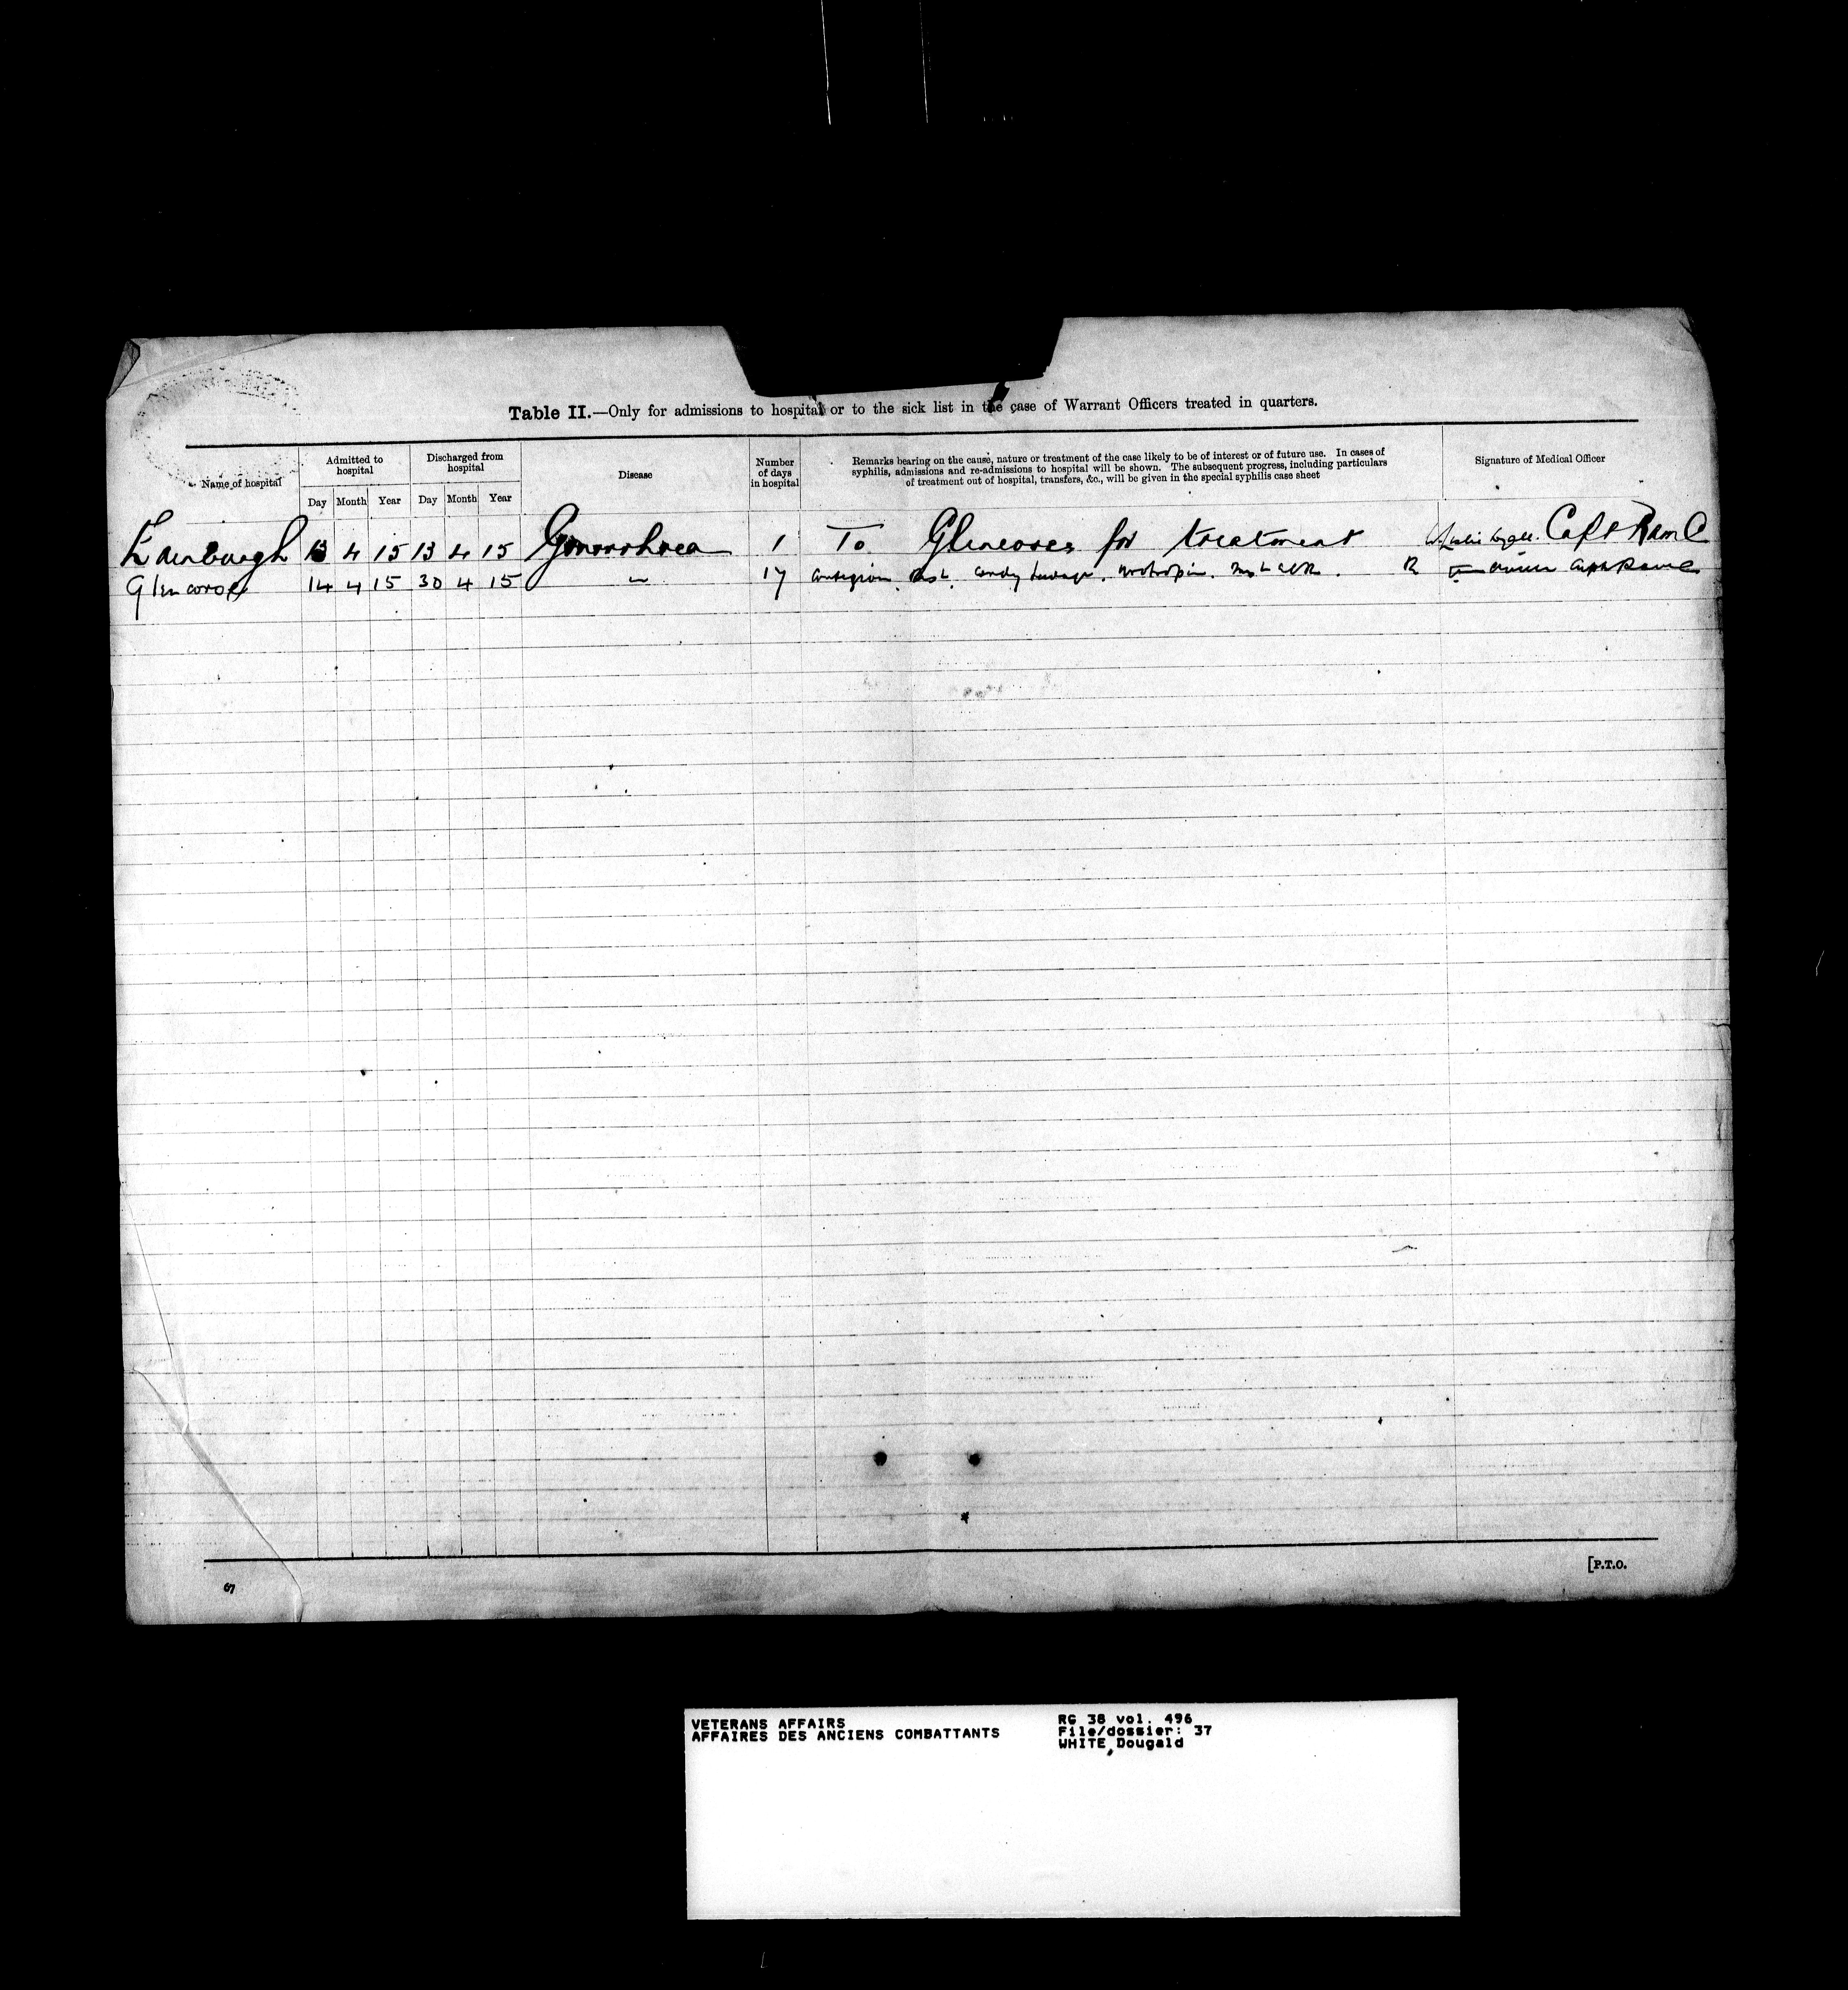 Table II.—Only for admissions to hospital or to the sick list in the case of Warrant Officers treated in quarters.
Name of hospital
Admitted to hospital
Day Month Year
Discharged from hospital
Day Month Year
Disease
Number of days in hospital
Remarks bearing on the cause, nature or treatment of the case likely to be of interest or of future use. In cases of
syphilis, admissions and re-admissions to hospital will be shown. The subsequent progress, including particulars
of treatment out of hospital, transfers, &c., will be given in the special syphilis case sheet
Signature of Medical Officer
Edinburgh 13 4 15 13 4 15 Gonorrhoea 1 To Glencorse for treatment Capt RAMC
Glencorse 14 4 15 30 4 15 " 17 Contagion. Rest. Condy lavage. Urotropin.
[P.T.O.
VETERANS AFFAIRS
AFFAIRES DES ANCIENS COMBATTANTS
RG 38 vol. 496
File/dossier: 37
WHITE, Dougald